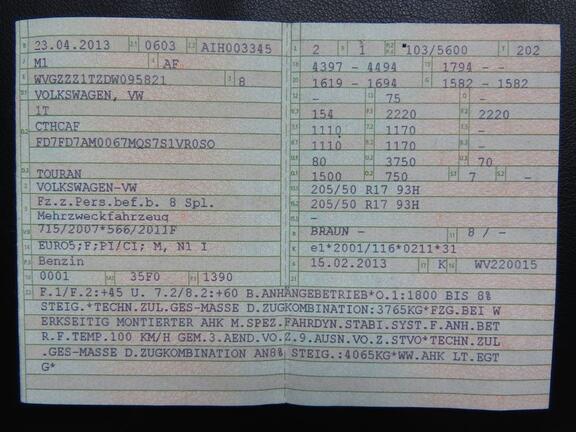 23.04.2013 0603 AIH003345
M1 AF
WVGZZZ1TZDW095821 8
VOLKSWAGEN, VW
1T
CTHCAF
FD7FD7AM0067MQS7S1VR0SO
TOURAN
VOLKSWAGEN-VW
Fz.z.Pers.bef.b. 8 Spl.
Mehrzweckfahrzeug
715/2007*566/2011F
EURO5;F;PI/CI; M, N1 I
Benzin
0001 35F0 1390
2 1 103/5600 202
4397 - 4494 1794 - -
1619 - 1694 1582 - 1582
- 75 -
154 2220 2220
1110 1170 -
1110 1170 -
80 3750 70
1500 750 7 -
205/50 R17 93H
205/50 R17 93H
-
BRAUN - 8 / -
e1*2001/116*0211*31
15.02.2013 K WV220015
F.1/F.2:+45 U. 7.2/8.2:+60 B.ANHÄNGEBETRIEB*O.1:1800 BIS 8%
STEIG.*TECHN.ZUL.GES-MASSE D.ZUGKOMBINATION:3765KG*FZG.BEI W
ERKSEITIG MONTIERTER AHK M.SPEZ.FAHRDYN.STABI.SYST.F.ANH.BET
R.F.TEMP.100 KM/H GEM.3.AEND.VO.Z.9.AUSN.VO.Z.STVO*TECHN.ZUL
.GES-MASSE D.ZUGKOMBINATION AN8% STEIG.:4065KG*WW.AHK LT.EGT
G*